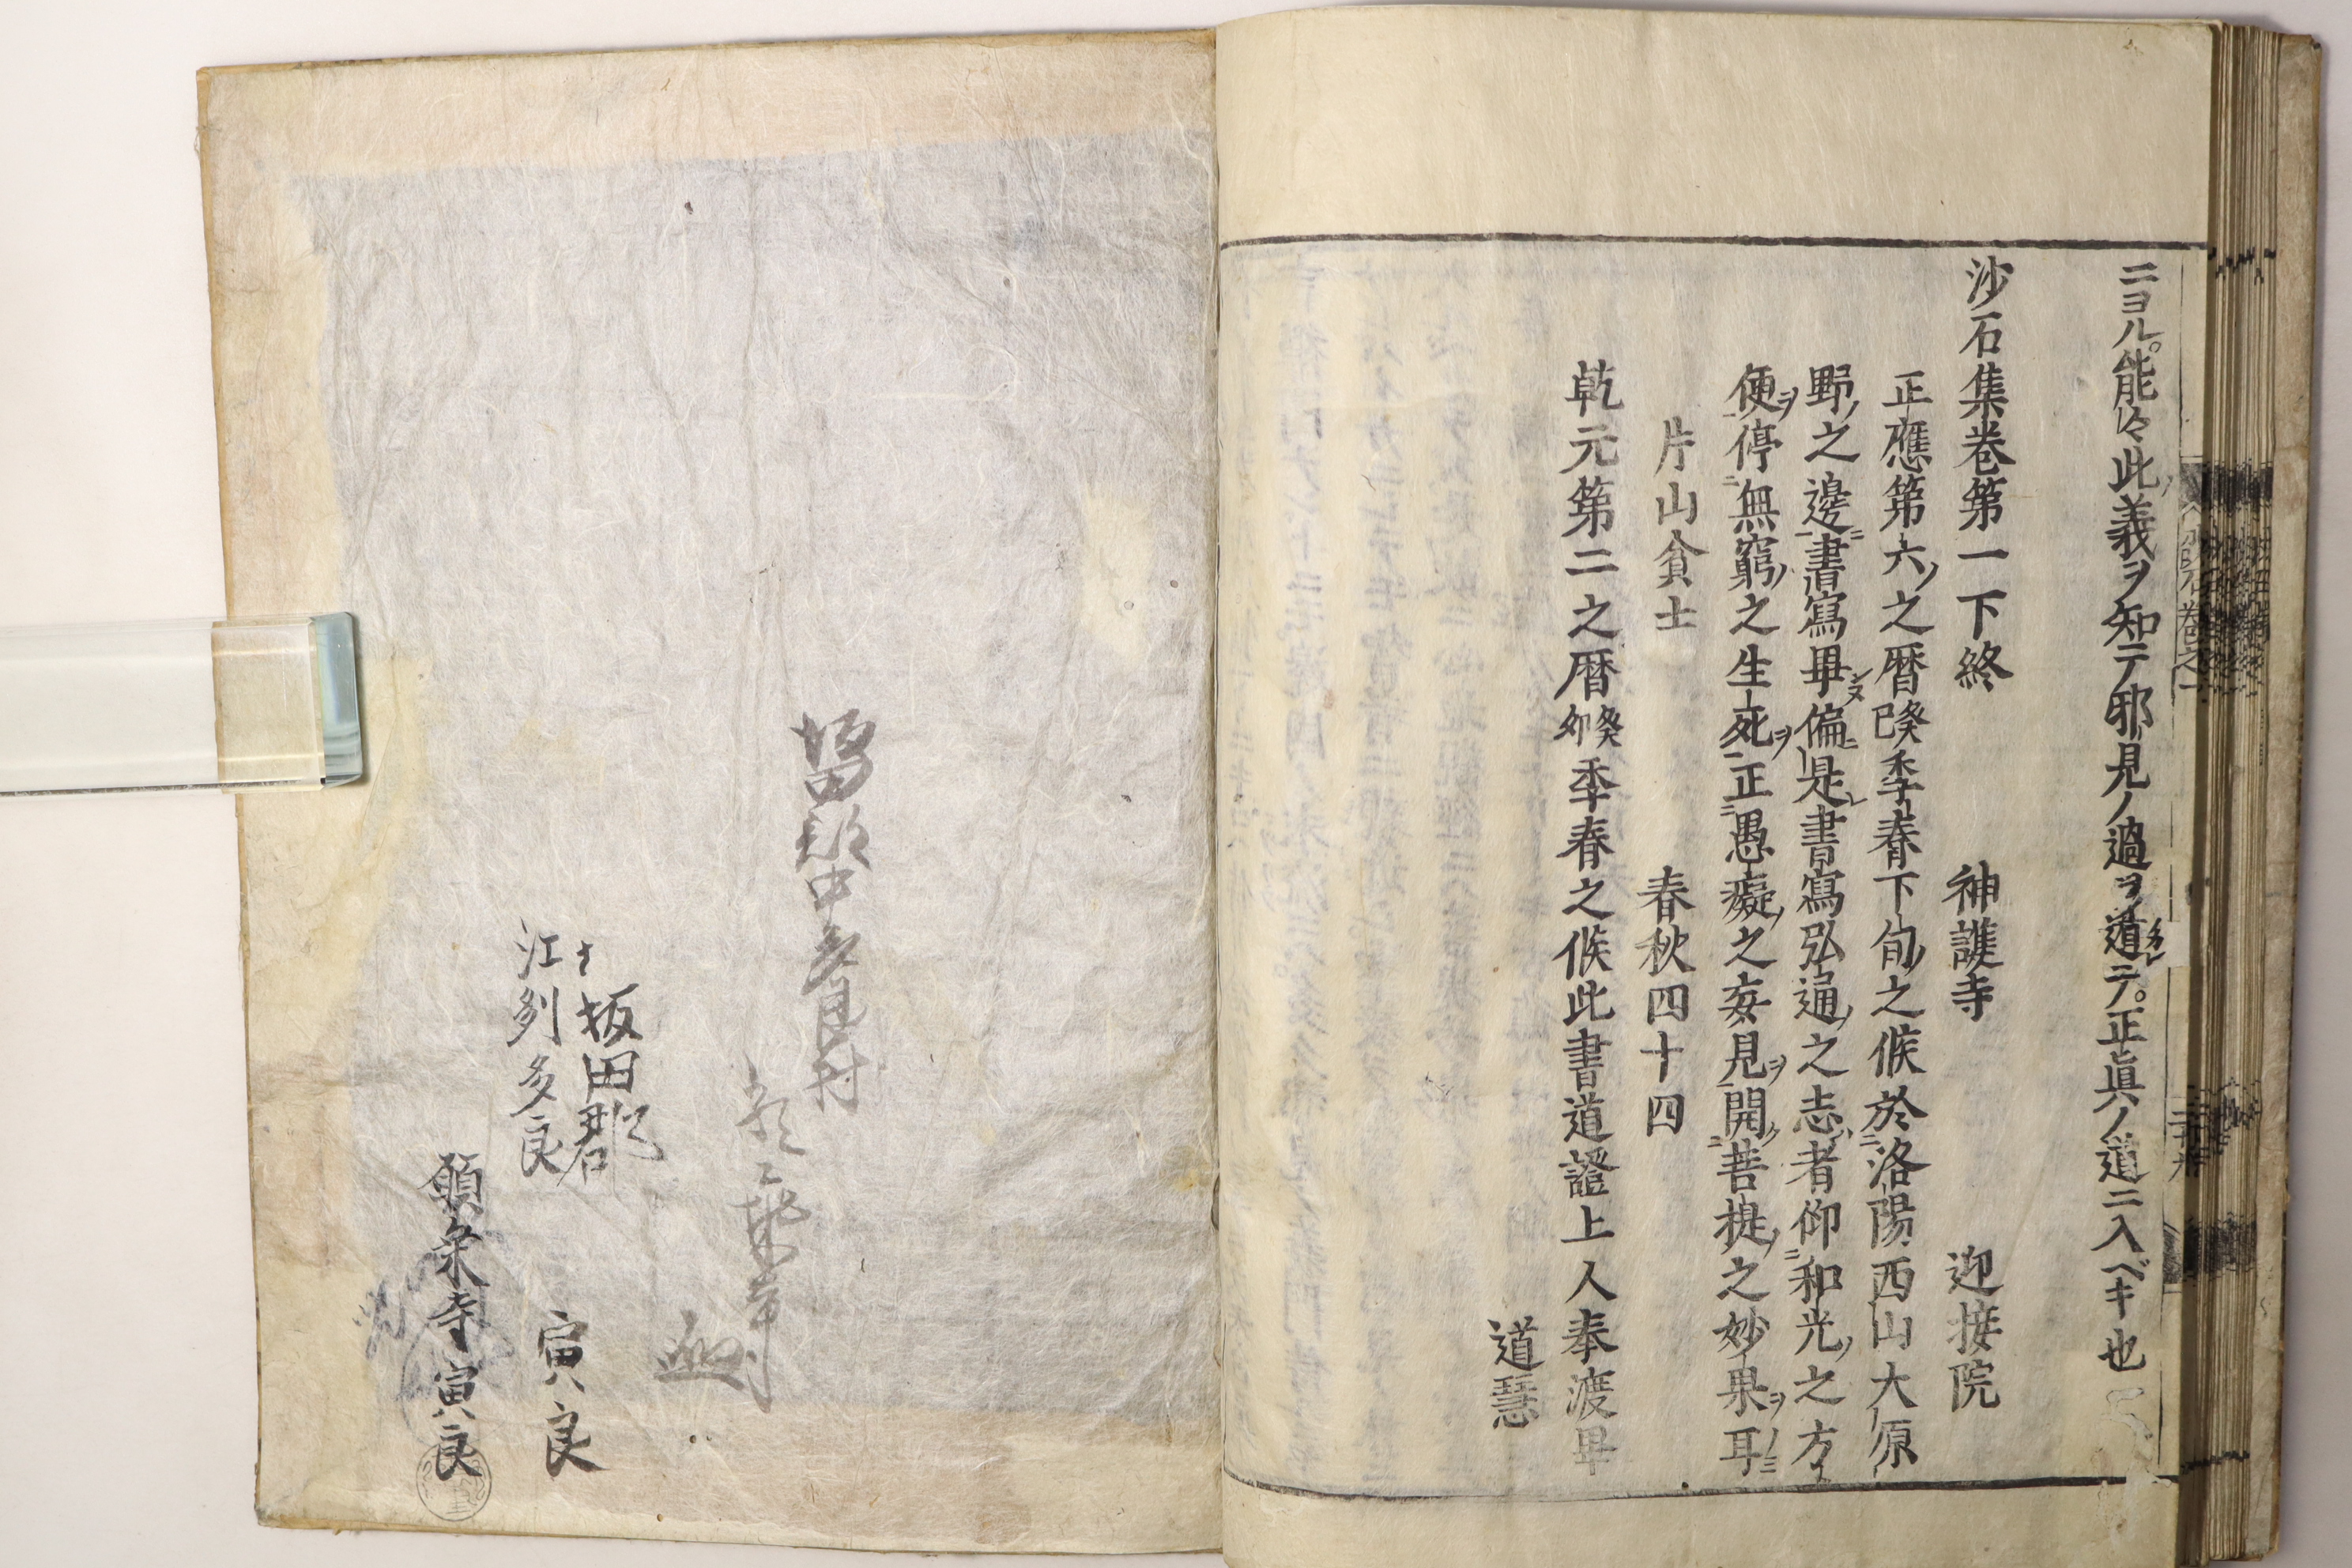 ニヨル。能々此ノ義ヲ知テ邪見ノ過ヲ遁レテ。正眞ノ道ニ入ベキ也
沙石集巻第一下終　神護寺　迎接院
正應第六ノ之暦癸巳季春下旬ノ之候於ニ洛陽西山大原
野ノ之邊ニ書寫畢ンヌ偏ニ是レ書寫弘通ノ之志者仰ニ和光ノ之方
便ヲ停ニ無窮ノ之生死ヲ正ニ愚癡ノ之妄見ヲ開ク菩提ノ之妙果ヲ耳ノミ
片山貧士　春秋四十四
乾元第二之暦癸卯季春之候此書道證上人奉渡畢
道慧
坂田郡
江刕多良
寅良
願乗寺寅良